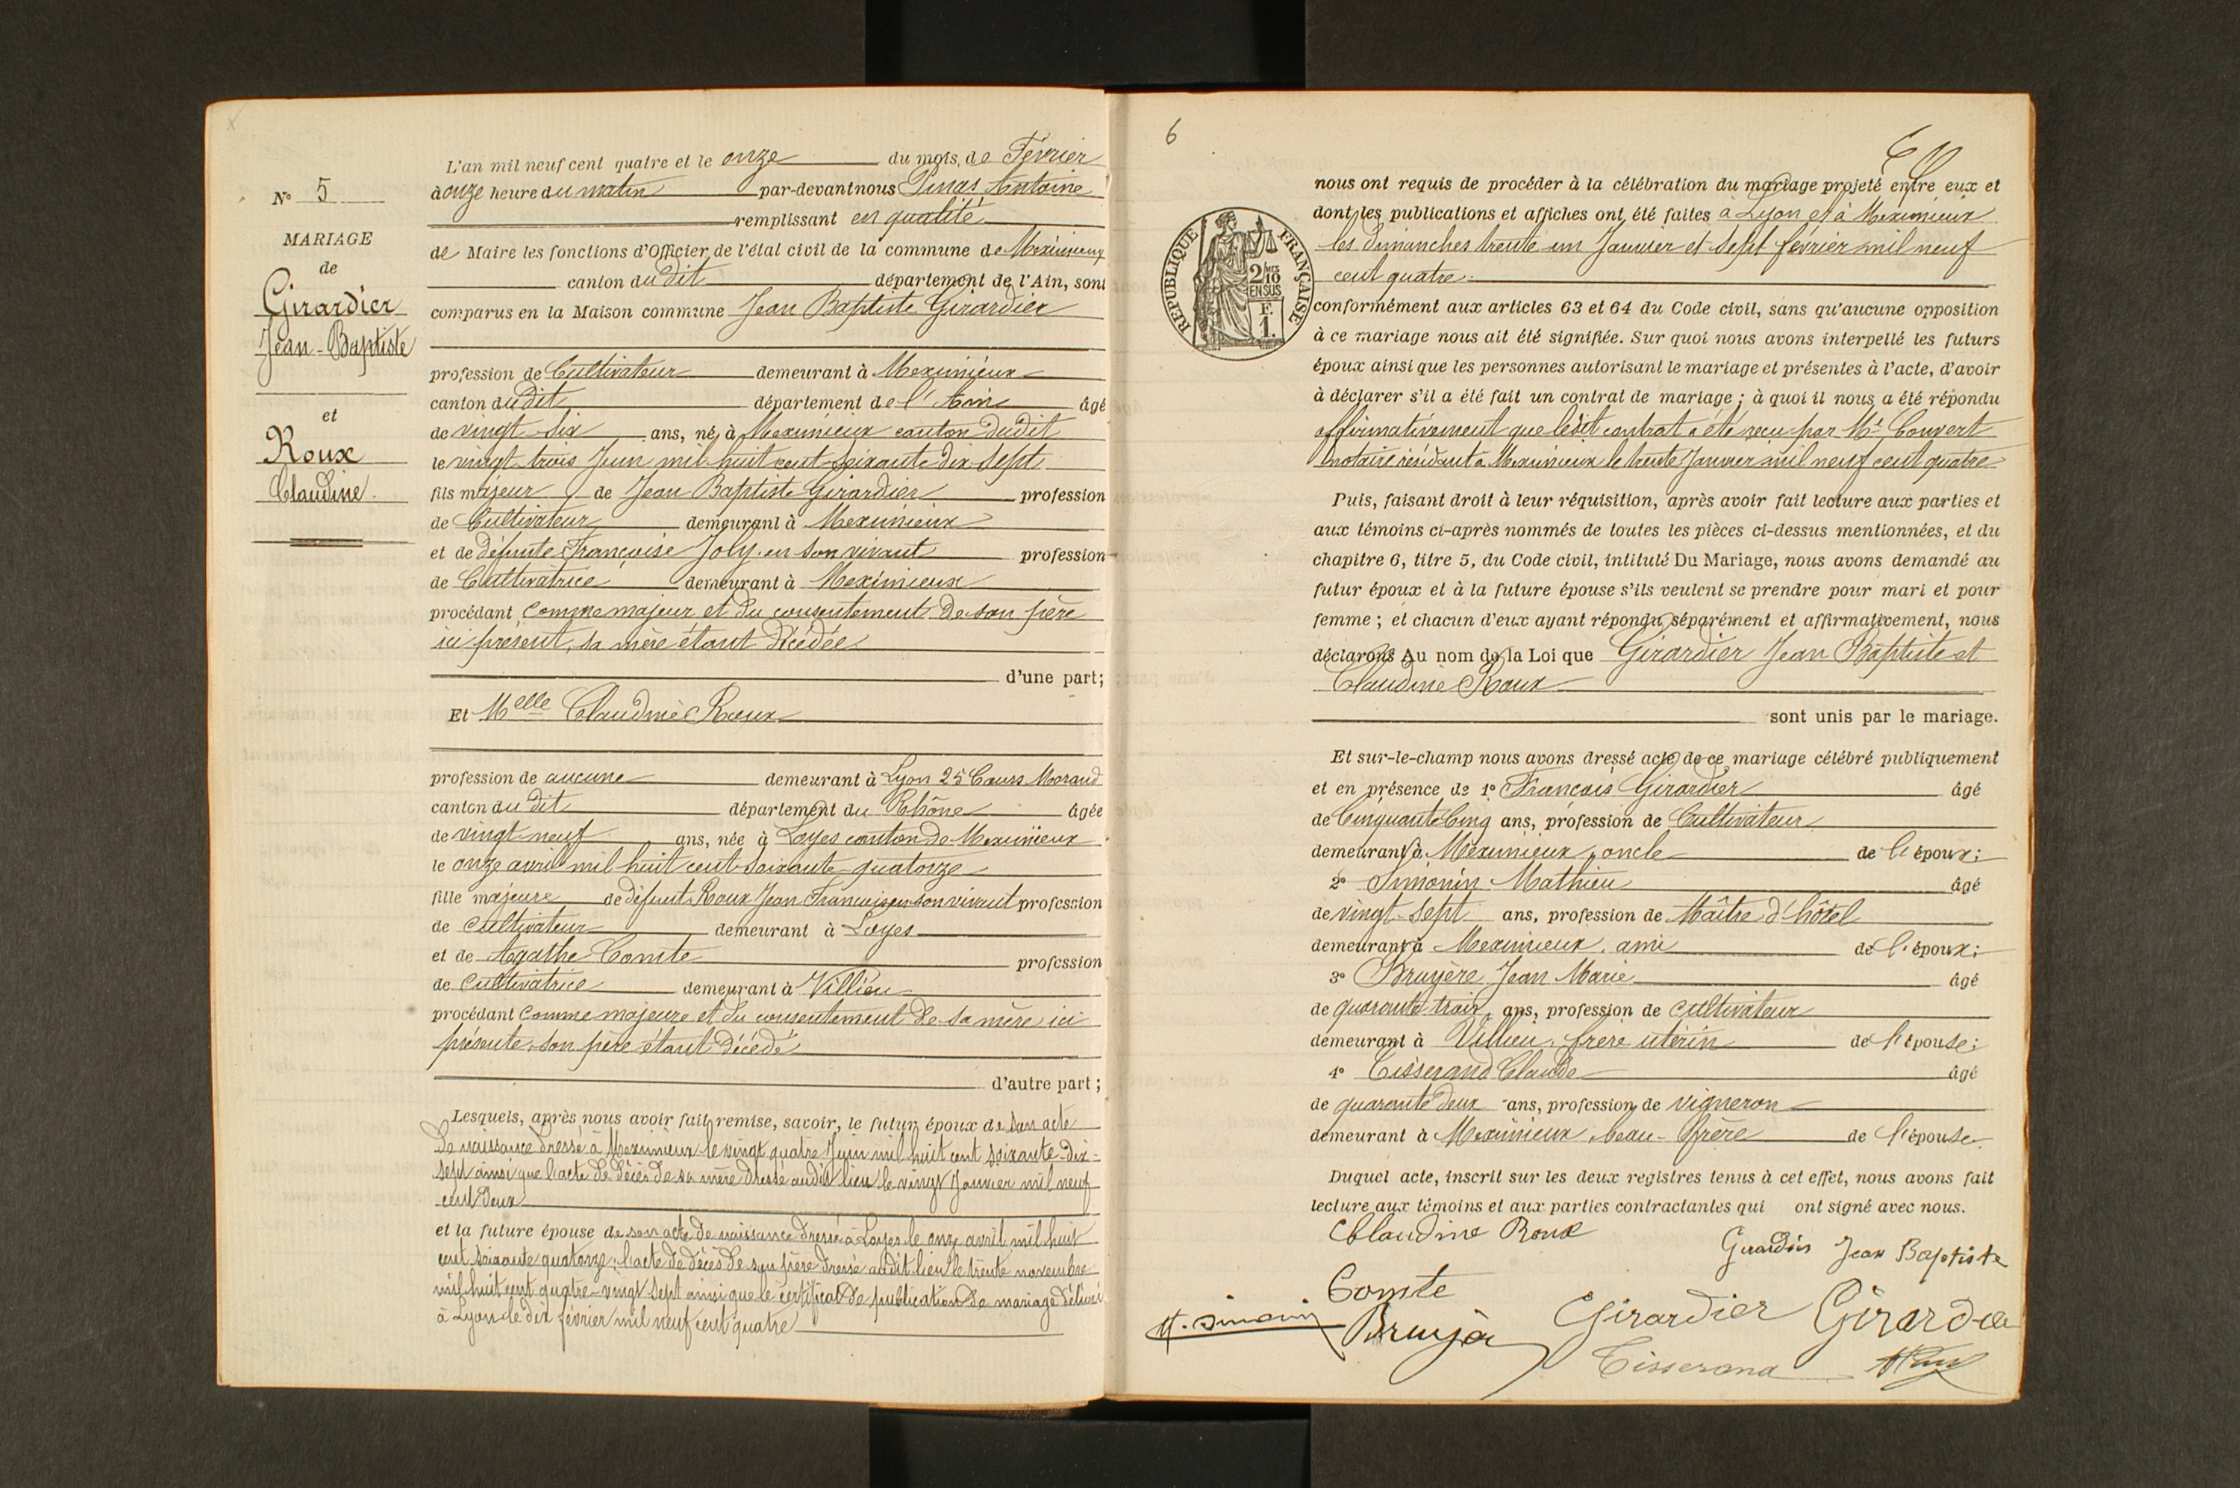 L'an mil neuf cent quatre et le onze du mois de Février
à onze heure du matin par-devant nous Pinas Antoine
remplissant en qualité
de Maire les fonctions d'Officier de l'état civil de la commune de Meximieux
canton du dit département de l'Ain, sont
comparus en la Maison commune Jean Baptiste Girardier
profession de Cultivateur demeurant à Meximieux
canton du dit département de l'Ain âgé
de vingt-six ans, né à Meximieux canton dudit
le vingt trois Juin mil huit cent soixante dix sept
fils majeur de Jean Baptiste Girardier profession
de Cultivateur demeurant à Meximieux
et de défunte Françoise Joly en son vivant profession
de Cultivatrice demeurant à Meximieux
procédant comme majeur et du consentement de son père
ici présent, sa mère étant décédée
d'une part;
Et Melle Claudine Roux
profession de aucune demeurant à Lyon 25 Cours Morand
canton du dit département du Rhône âgée
de vingt-neuf ans, née à Loyes canton de Meximieux
le onze avril mil huit cent soixante-quatorze
fille majeure de défunt Roux Jean François en son vivant profession
de cultivateur demeurant à Loyes
et de Agathe Comte profession
de cultivatrice demeurant à Villieu
procédant comme majeure et du consentement de sa mère ici
présente, son père étant décédé
d'autre part;
Lesquels, après nous avoir fait remise, savoir, le futur époux de son acte
de naissance dressé à Meximieux le vingt quatre Juin mil huit cent soixante-dix-
sept ainsi que l'acte de décès de sa mère dressé audit lieu le vingt Janvier mil neuf
cent deux
et la future épouse de son acte de naissance dressé à Loyes le onze avril mil huit
cent soixante quatorze, l'acte de décès de son père dressé audit lieu le trente novembre
mil huit cent quatre-vingt sept ainsi que le certificat de publication de mariage délivré
à Lyon le dix février mil neuf cent quatre
N° 5
MARIAGE
de
Girardier
Jean-Baptiste
et
Roux
Claudine
6
REPUBLIQUE FRANÇAISE
2/10
EN SUS
F.
1.
nous ont requis de procéder à la célébration du mariage projeté entre eux et
dont les publications et affiches ont été faites à Lyon et à Meximieux
les dimanches trente un Janvier et sept février mil neuf
cent quatre
conformément aux articles 63 et 64 du Code civil, sans qu'aucune opposition
à ce mariage nous ait été signifiée. Sur quoi nous avons interpellé les futurs
époux ainsi que les personnes autorisant le mariage et présentes à l'acte, d'avoir
à déclarer s'il a été fait un contrat de mariage; à quoi il nous a été répondu
affirmativement que ledit contrat a été reçu par Me Couvert
notaire résidant à Meximieux le trente Janvier mil neuf cent quatre
Puis, faisant droit à leur réquisition, après avoir fait lecture aux parties et
aux témoins ci-après nommés de toutes les pièces ci-dessus mentionnées, et du
chapitre 6, titre 5, du Code civil, intitulé Du Mariage, nous avons demandé au
futur époux et à la future épouse s'ils veulent se prendre pour mari et pour
femme; et chacun d'eux ayant répondu séparément et affirmativement, nous
déclarons Au nom de la Loi que Girardier Jean Baptiste et
Claudine Roux
sont unis par le mariage.
Et sur-le-champ nous avons dressé acte de ce mariage célébré publiquement
et en présence de 1° François Girardier âgé
de Cinquante Cinq ans, profession de Cultivateur
demeurant à Meximieux, oncle de l'époux;
2° Simonin Mathieu âgé
de vingt-sept ans, profession de Maître d'hôtel
demeurant à Meximieux, ami de l'époux;
3° Bruyère Jean Marie âgé
de quarante trois ans, profession de cultivateur
demeurant à Villieu, frère utérin de l'épouse;
4° Tisserand Claude âgé
de quarante deux ans, profession de vigneron
demeurant à Meximieux, beau-frère de l'épouse
Duquel acte, inscrit sur les deux registres tenus à cet effet, nous avons fait
lecture aux témoins et aux parties contractantes qui ont signé avec nous.
Claudine Roux
Girardier Jean Baptiste
Comte
Girardier
Tisserand